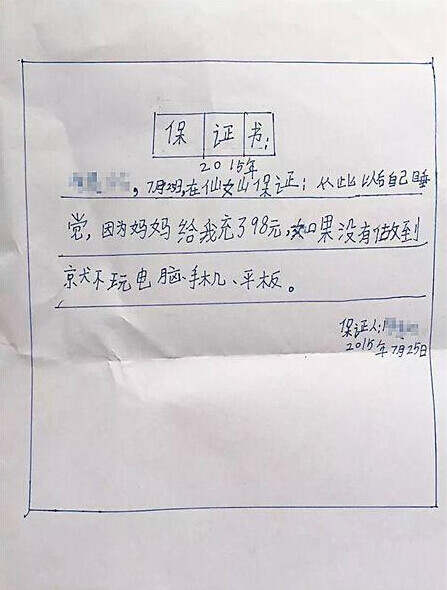 保证书:
2015年
,7月25日,在仙女山保证:从此以后自己睡
党,因为妈妈给我充了98元,如果没有做到
就不玩电脑、手机、平板。
保证人:
2015年7月25日